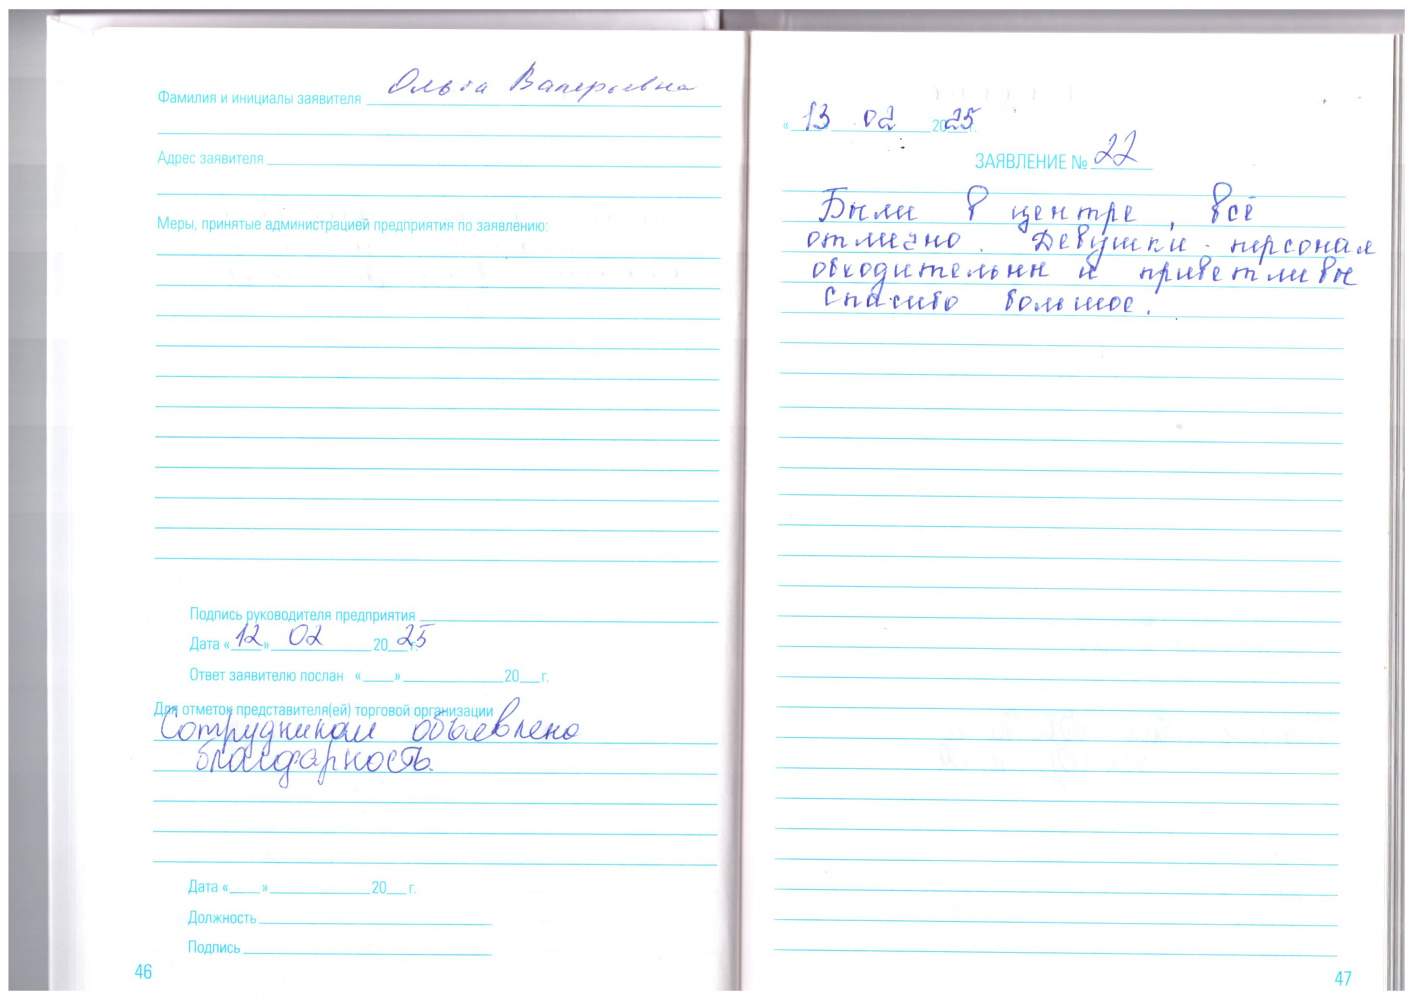 Фамилия и инициалы заявителя Ольга Валерьевна
Адрес заявителя
Меры, принятые администрацией предприятия по заявлению:
Подпись руководителя предприятия
Дата «12» 02 2025 г.
Ответ заявителю послан « » 20 г.
Для отметок представителя(ей) торговой организации
Сотрудникам объявлена
благодарность.
Дата « » 20 г.
Должность
Подпись
46
« 13 02 2025 г.
ЗАЯВЛЕНИЕ № 22
Были в центре, всё
отлично. Девушки - персонал
обходительны и приветливы
Спасибо большое.
47